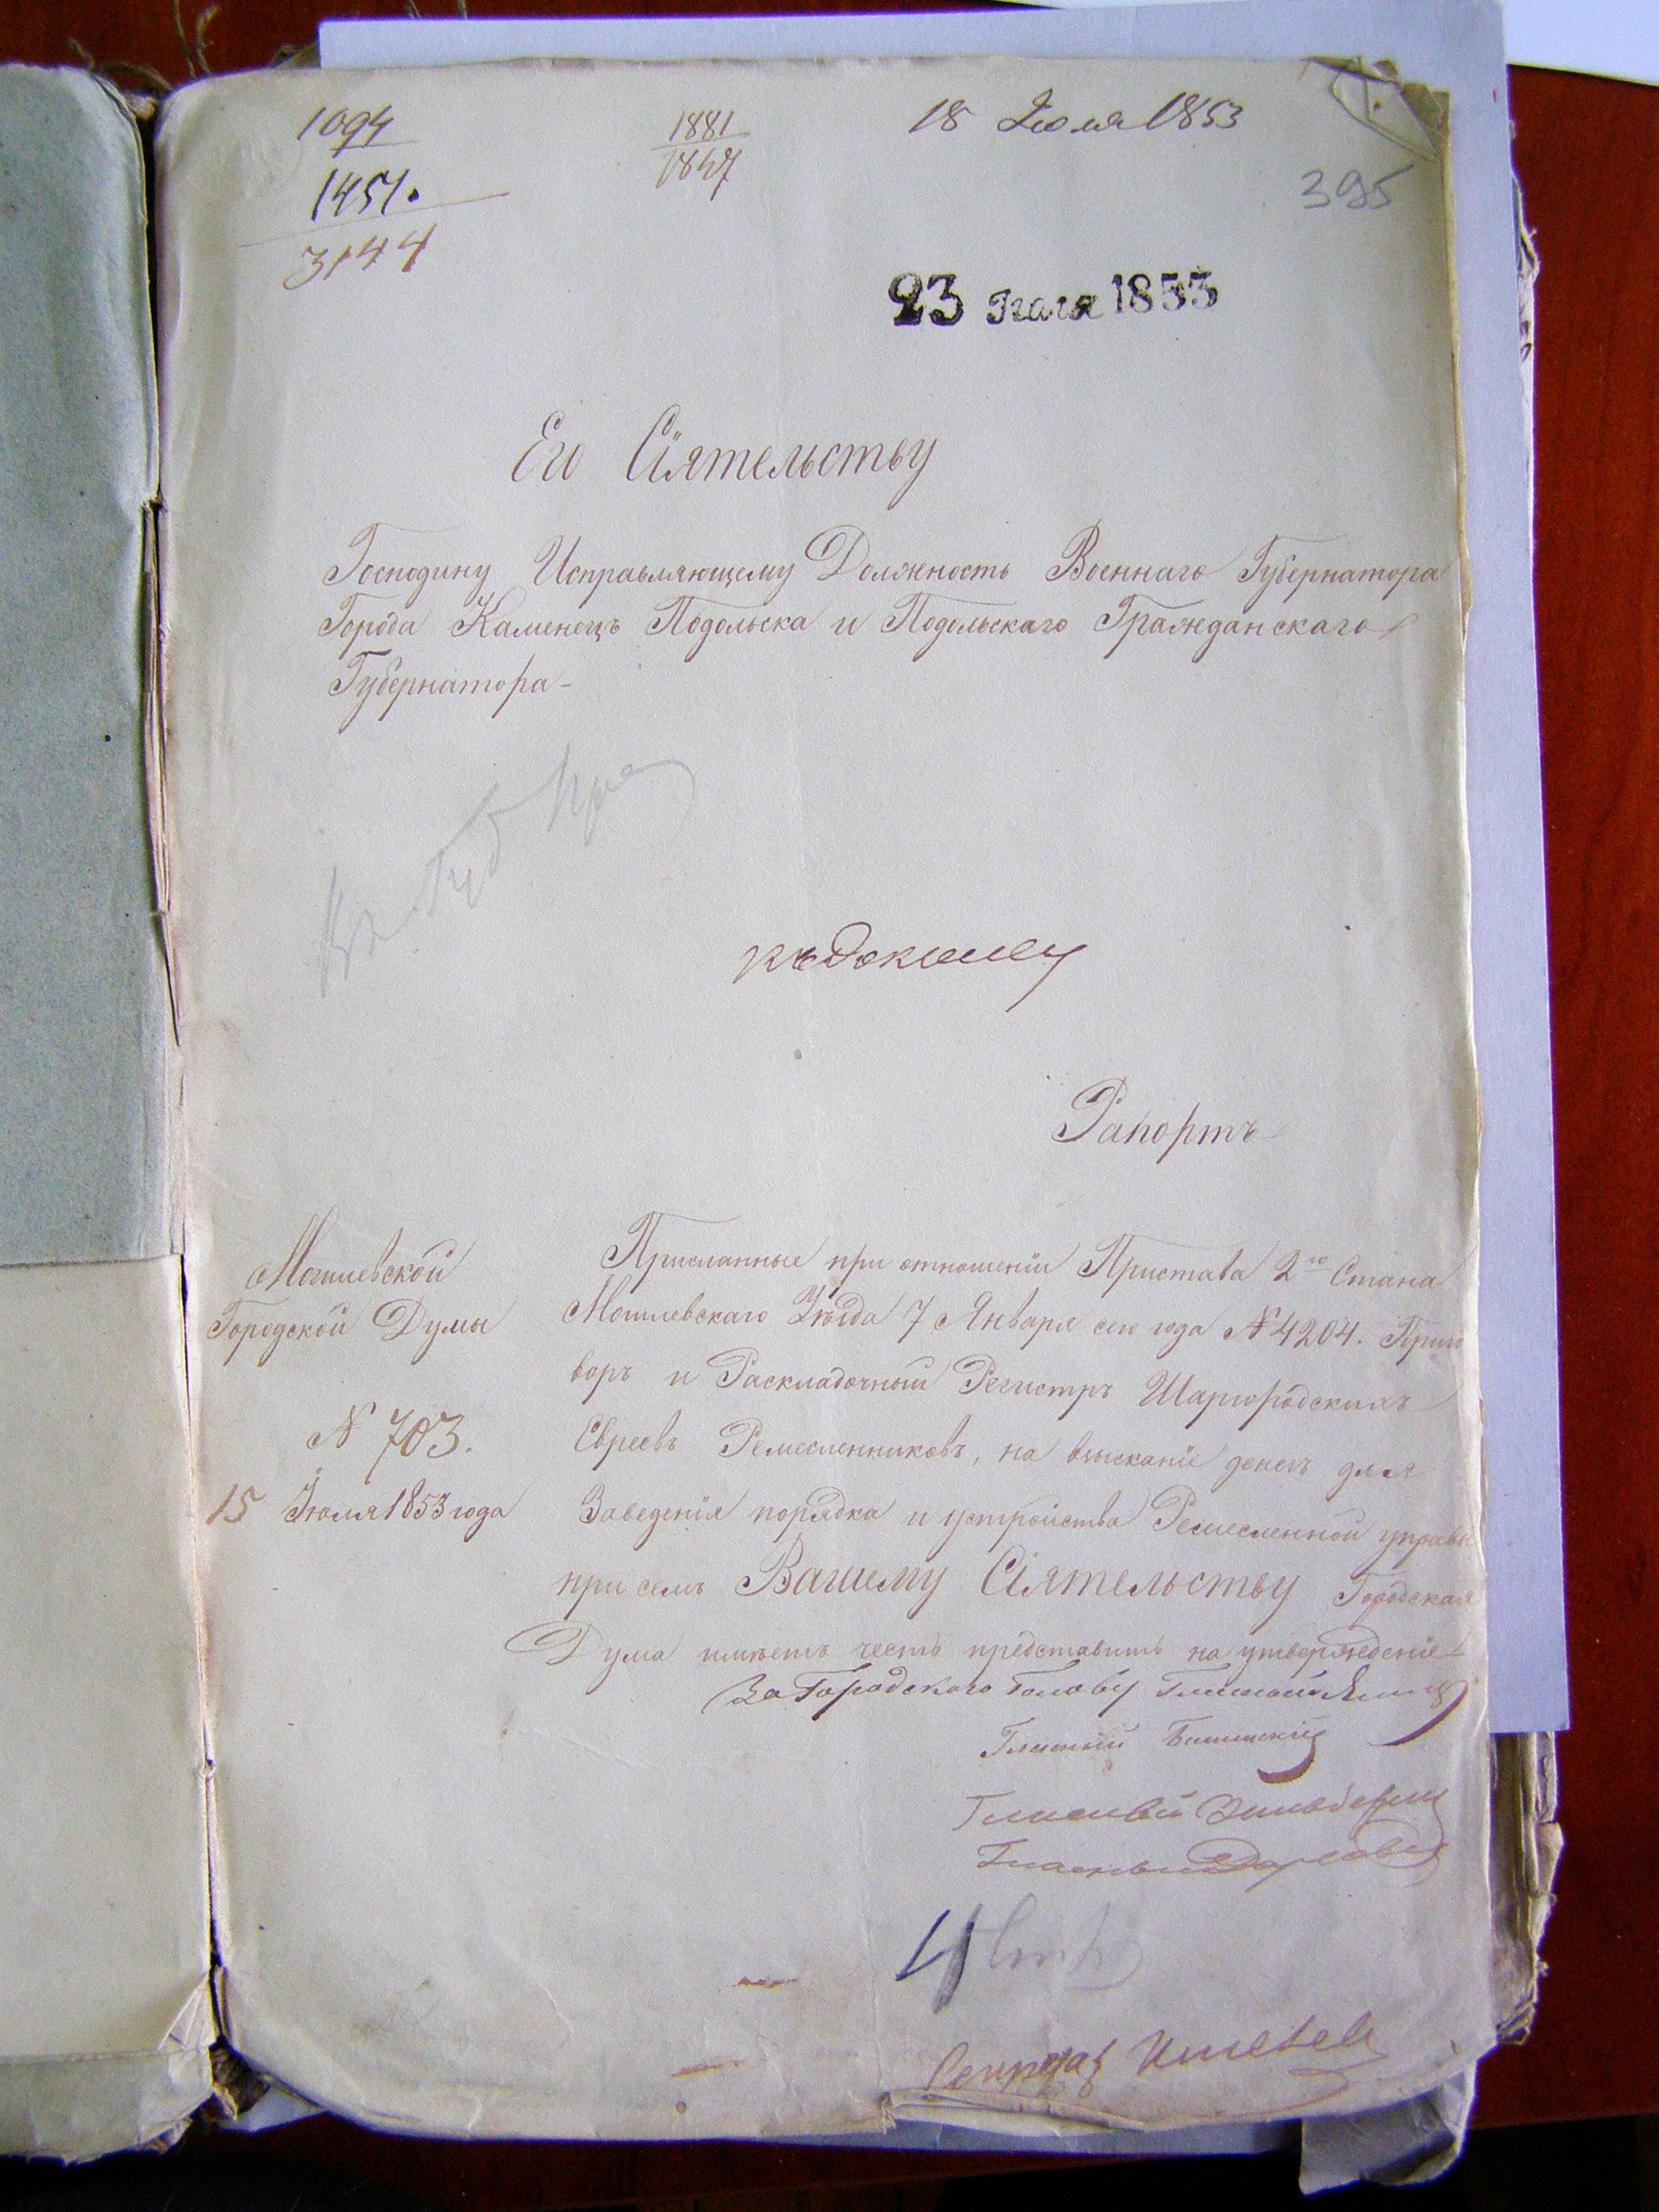 1094
1451.
3144
1881
1847
18 Июля 1853
395
23 Июля 1853
Его Сіятельству
Господину Исправляющему Должность Военнаго Губернатора
Города Каменецъ Подольска и Подольскаго Гражданскаго
Губернатора-
Въ Губ Пра
къ докладу
Рапортъ
Могилевской
Городской Думы
N 703.
15 Іюля 1853 года
Присланные при отношеніи Пристава 2го Стана
Могилевскаго Уѣзда 7 Января сего года N 4204. Приго
воръ и Раскладочный Регистръ Шаргородскихъ
Евреевъ Ремесленниковъ, на взысканіе денегъ для
Заведенія порядка и устройства Ремесленной управы
при семъ Вашему Сіятельству Городская
Дума имѣетъ честь представить на утвержденіе
За Городского Голову Гласный
Гласный
Гласный
Гласный
Секретарь